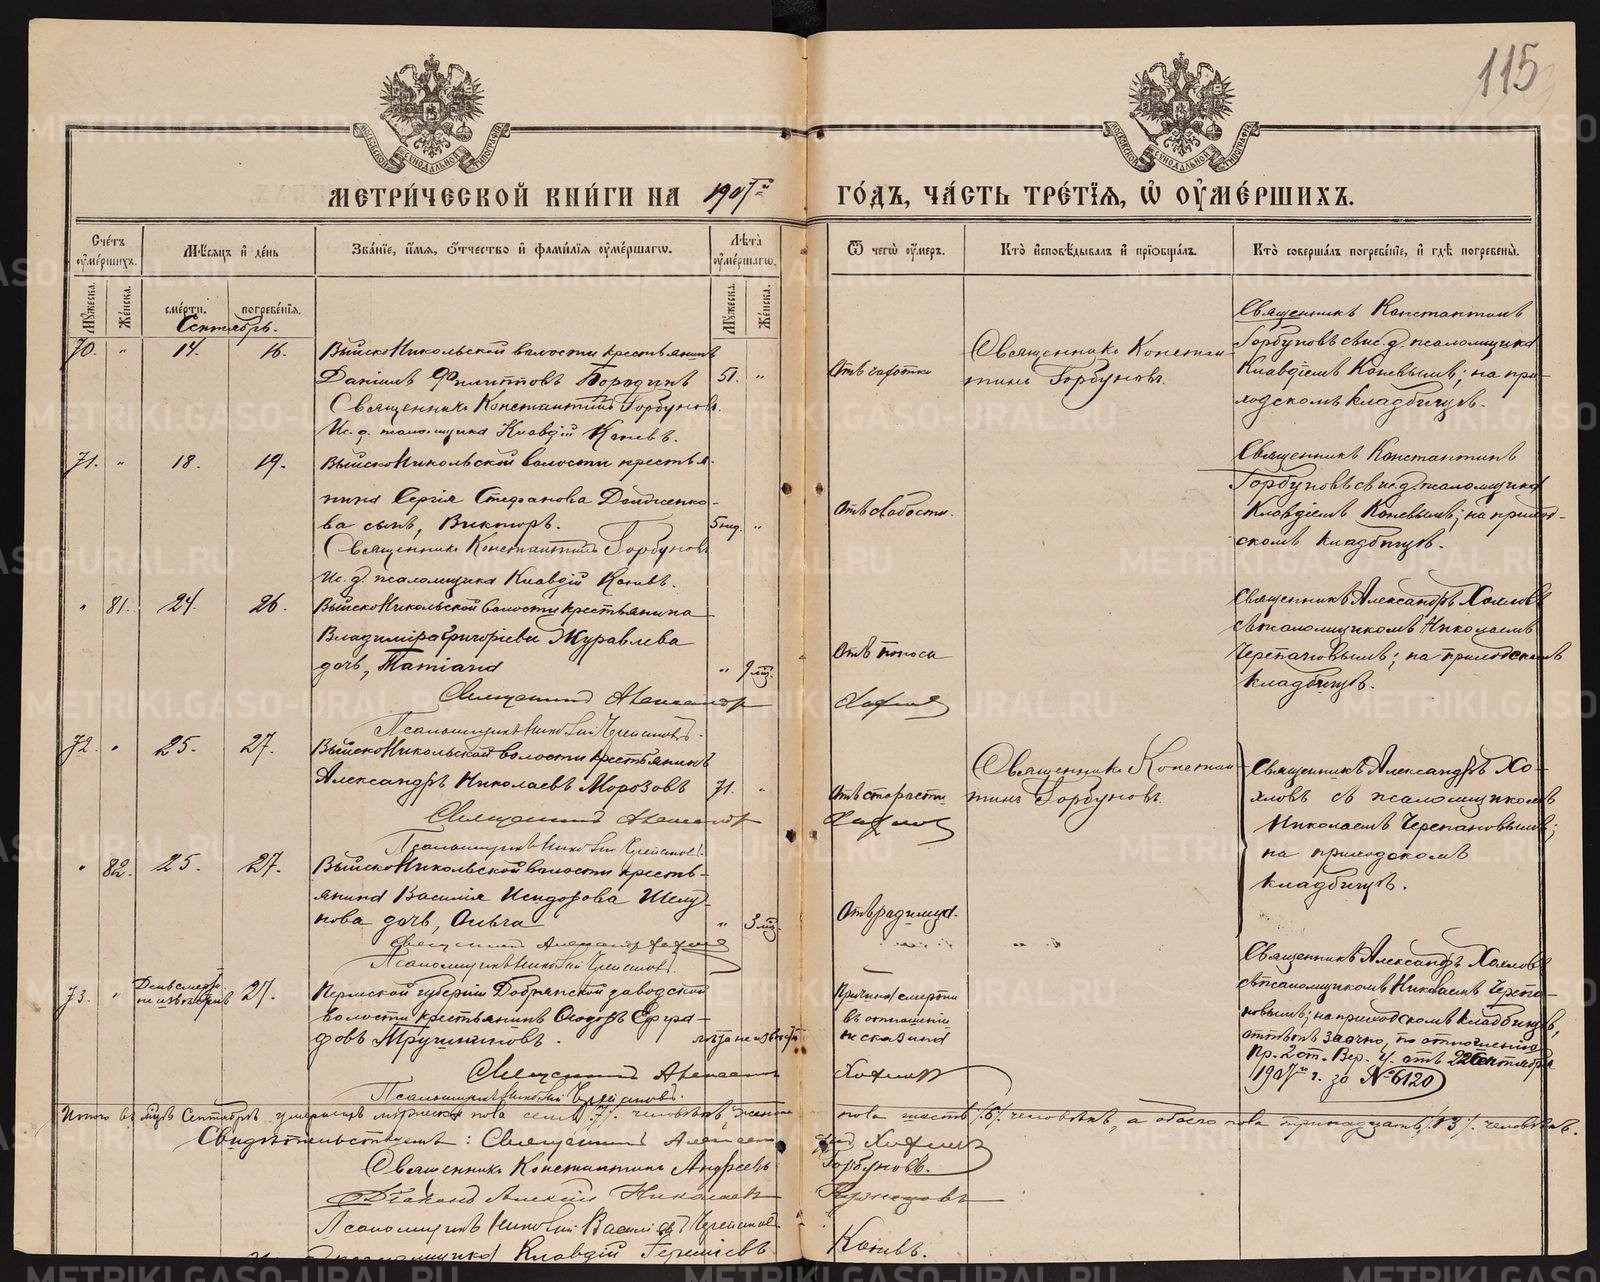 115
МОСКОВСКОЙ СѴНОДАЛЬНОЙ ТИПОГРАФІИ
МОСКОВСКОЙ СѴНОДАЛЬНОЙ ТИПОГРАФІИ
МЕТРИ́ЧЕСКОЙ КНИ́ГИ НА 1907й ГО́ДЪ, ЧА́СТЬ ТРЕ́ТЇѦ, Ѡ҆ ОУ҆МЕ́РШИХЪ.
Сче́тъ оу҆ме́ршихъ.
Мѣ́сѧцъ и҆ де́нь
Зва́нїе, и҆́мѧ, ѻ҆́тчество и҆ фами́лїѧ оу҆ме́ршагѡ.
Лѣ́та оу҆ме́ршагѡ.
Ѿ чегѡ̀ оу҆́меръ.
Кто̀ и҆сповѣ́дывалъ и҆ прїѡбща́лъ.
Кто̀ соверша́лъ погребе́нїе, и҆ гдѣ̀ погребены̀.
Мꙋ́жеска.
Же́нска.
сме́рти.
погребе́нїѧ.
Мꙋ́жеска.
Же́нска.
Сентябрь.
70. " 14. 16.
Выйско Никольской волости крестьянинъ
Данiилъ Филипповъ Бородинъ
51. "
Священникъ Константинъ Горбуновъ.
Ис. д. псаломщика Клавдій Каневъ.
Отъ чахотки
Священникъ Констан-
тинъ Горбуновъ.
Священникъ Константинъ
Горбуновъ съ ис. д. псаломщика
Клавдіемъ Каневымъ; на при-
ходскомъ кладбищѣ.
71. " 18. 19.
Выйско Никольской волости крестья-
нина Сергія Стефанова
ва сынъ, Викторъ.
5 нед. "
Священникъ Константинъ Горбуновъ
Ис. д. псаломщика Клавдій Каневъ.
Отъ слабости.
Священникъ Константинъ
Горбуновъ съ ис. д. псаломщика
Клавдіемъ Каневымъ; на приход-
скомъ кладбищѣ.
" 81. 24. 26.
Выйско Никольской волости крестьянина
Владиміра Григоріева Журавлева
дочь, Татіана
" 9 мц.
Священникъ Александръ Хохловъ
Псаломщикъ Николай Черепановъ.
Отъ поноса
Священникъ Александръ Хохловъ
съ псаломщикомъ Николаемъ
Черепановымъ; на приходскомъ
кладбищѣ.
72. " 25. 27.
Выйско Никольской волости крестьянинъ
Александръ Николаевъ Морозовъ
71. "
Священникъ Александръ Хохловъ
Псаломщикъ Николай Черепановъ.
Отъ старости
Священникъ Констан-
тинъ Горбуновъ.
Священникъ Александръ Хо-
хловъ съ псаломщикомъ
Николаемъ Черепановымъ;
на приходскомъ
кладбищѣ.
" 82. 25. 27.
Выйско Никольской волости кресть-
янина Василія Исидорова Шелу-
нова дочь, Ольга
" 3 мц.
Священникъ Александръ Хохловъ
Псаломщикъ Николай Черепановъ.
Отъ родимца.
73. " День смерти неизвѣстенъ 27.
Пермской губерніи Добрянской заводской
волости крестьянинъ Ѳеодоръ Ефра-
довъ
лѣта неизвѣстны
Священникъ Александръ Хохловъ
Псаломщикъ Николай Черепановъ.
Причина смерти
въ отношеніи
не сказана
Священникъ Александръ Хохловъ
съ псаломщикомъ Николаемъ Черепа-
новымъ; на приходскомъ кладбищѣ,
отпѣтъ заочно, по отношенію
Пр. 2 от. Вер. У. отъ 22 Сентября
1907 г. за № 6120
Итого въ м-цѣ Сентябрѣ умершихъ мужеска пола семь /7/. человѣкъ, женска пола шесть /6/ человѣкъ, а обоего пола тринадцать /13/. человѣкъ.
Свидѣтельствуемъ: Священникъ Алексан дръ Хохловъ
Священникъ Константинъ Андреевъ Горбуновъ.
Діаконъ Алексій Николаевъ Кузнецовъ
Псаломщикъ Николай Василіевъ Черепановъ
псаломщика Клавдій Каневъ.